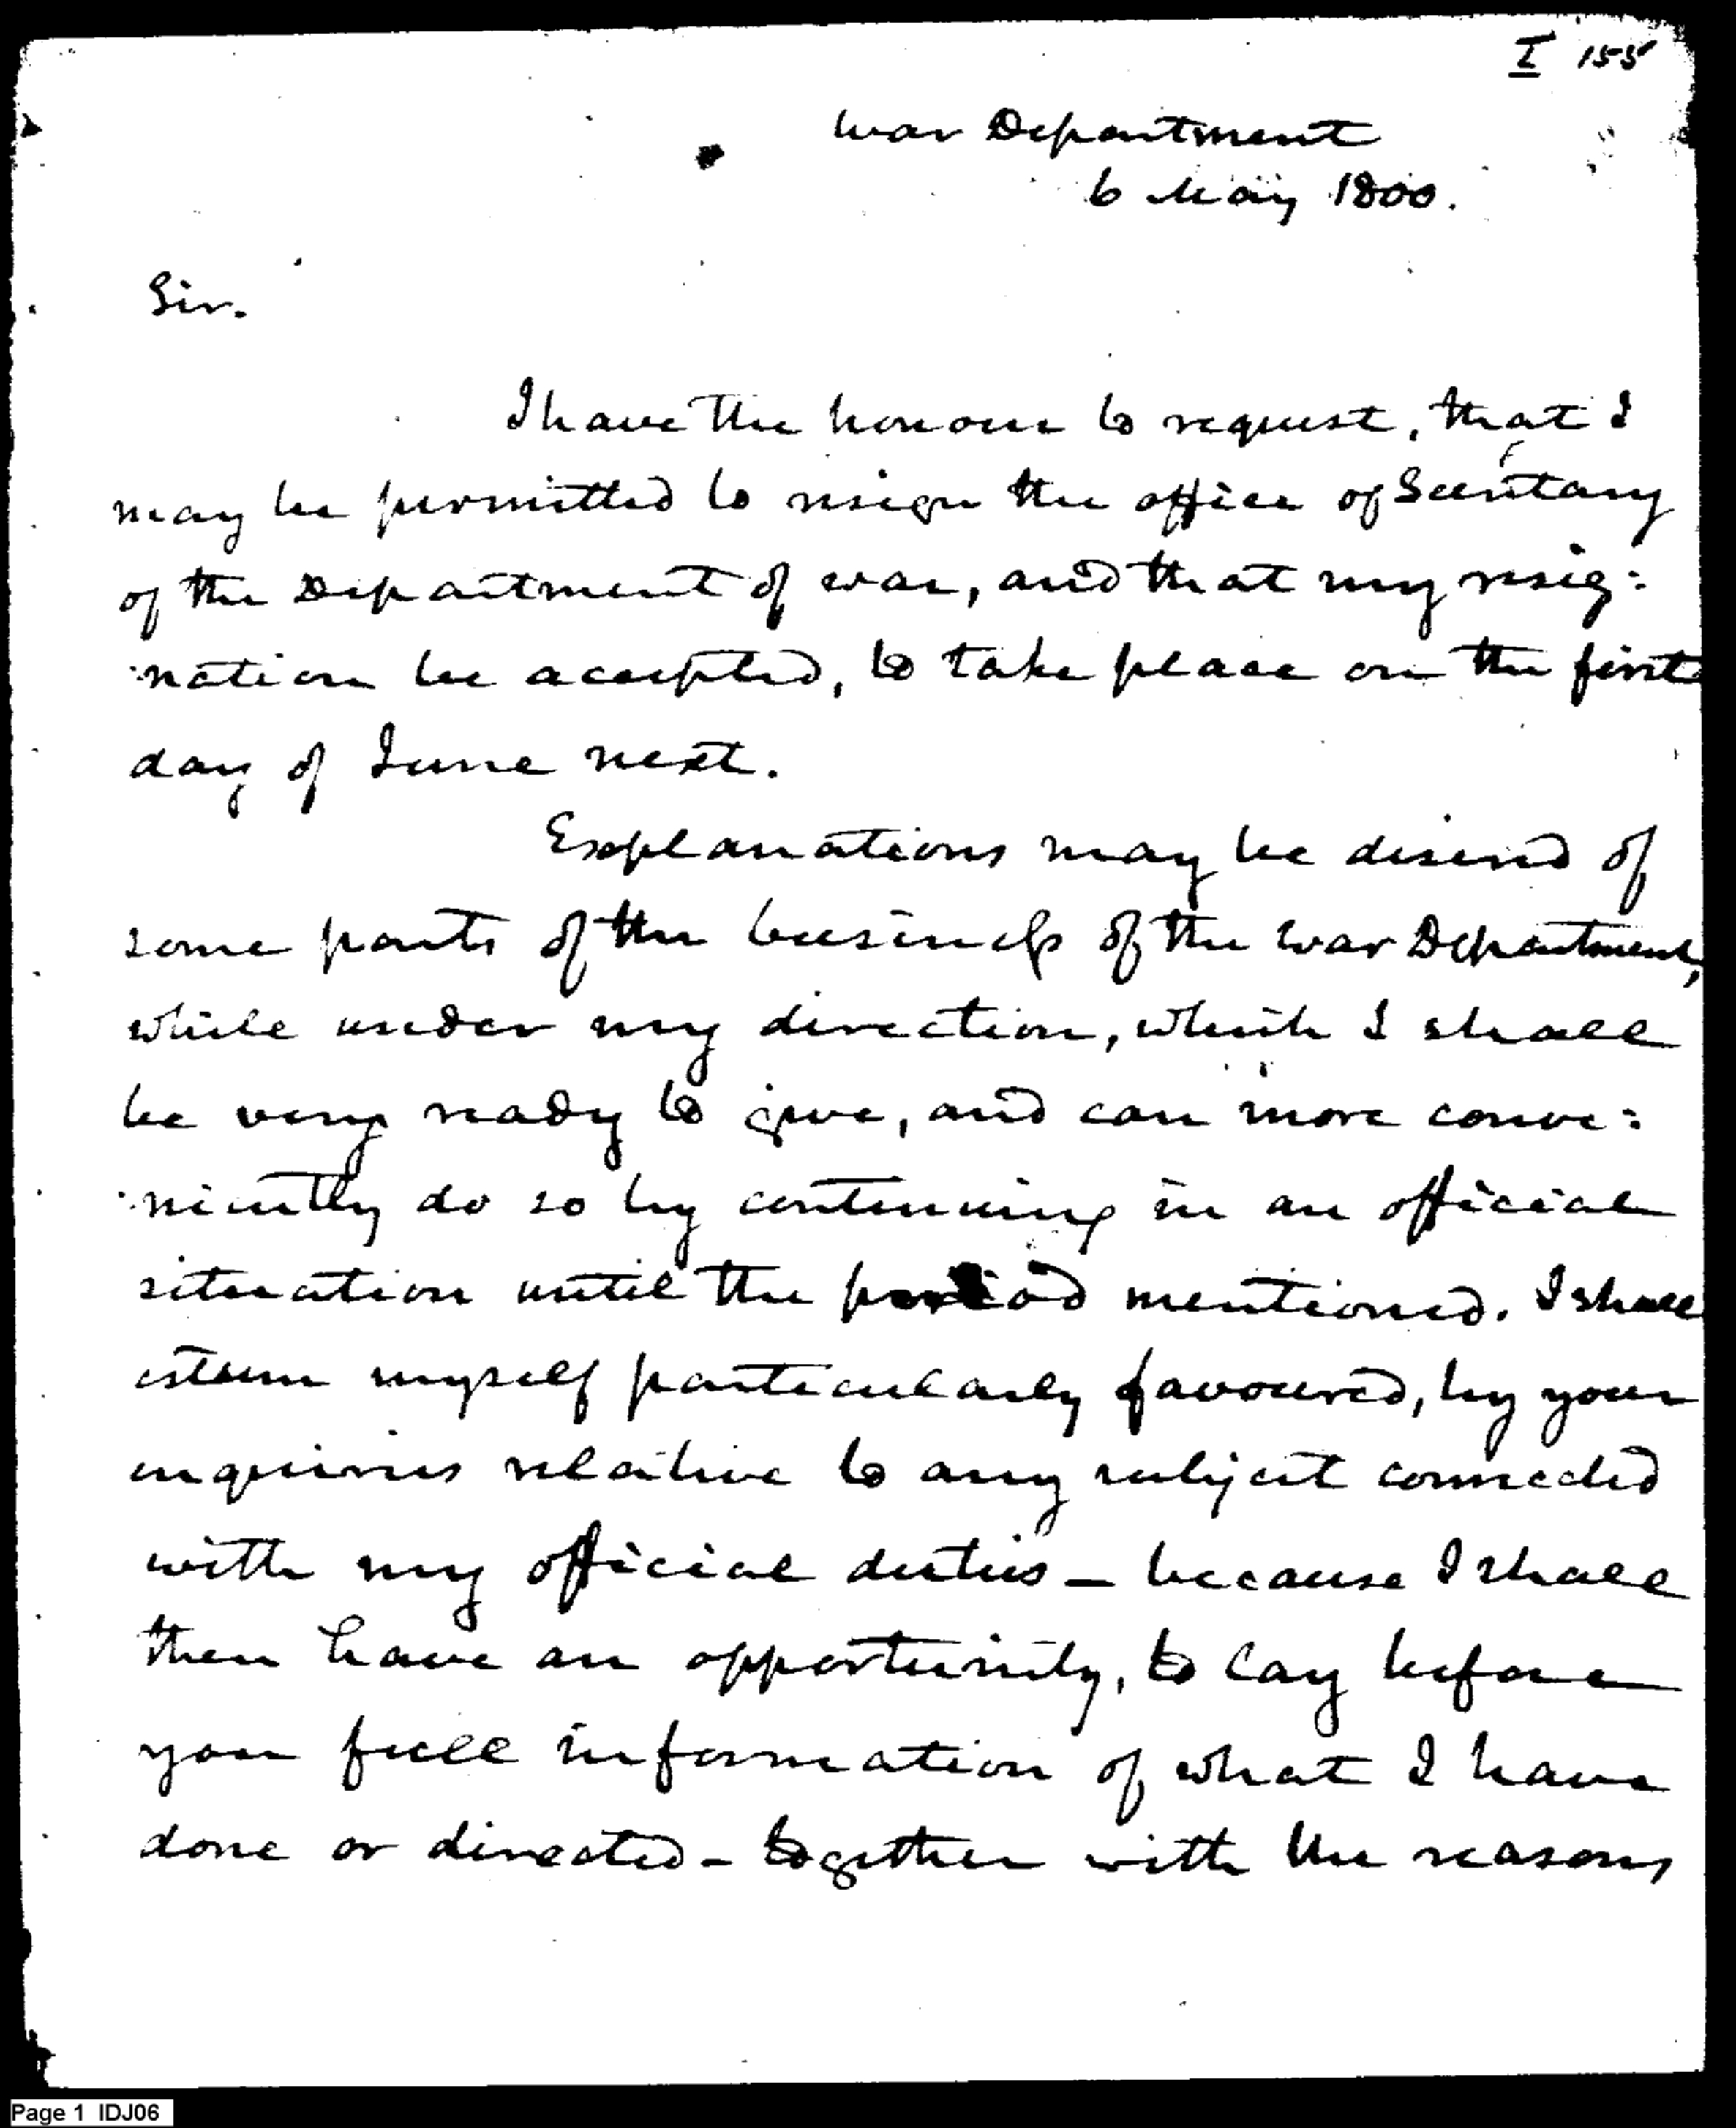 I 155
War Department
6 May 1800.
Sir.
I have the honour to request, that I
may be permitted to resign the office of Secretary
of the Department of war, and that my resig:
:nation be accepted, to take place on the first
day of June next.
Explanations may be desired of
some parts of the business of the War Department,
while under my direction, which I shall
be very ready to give, and can more conve:
:niently do so by continuing in an official
situation until the period mentioned. I shall
esteem myself particularly favoured, by your
inquiries relative to any subject connected
with my official duties – because I shall
then have an opportunity, to lay before
you full information of what I have
done or directed – together with the reasons
Page 1 IDJ06